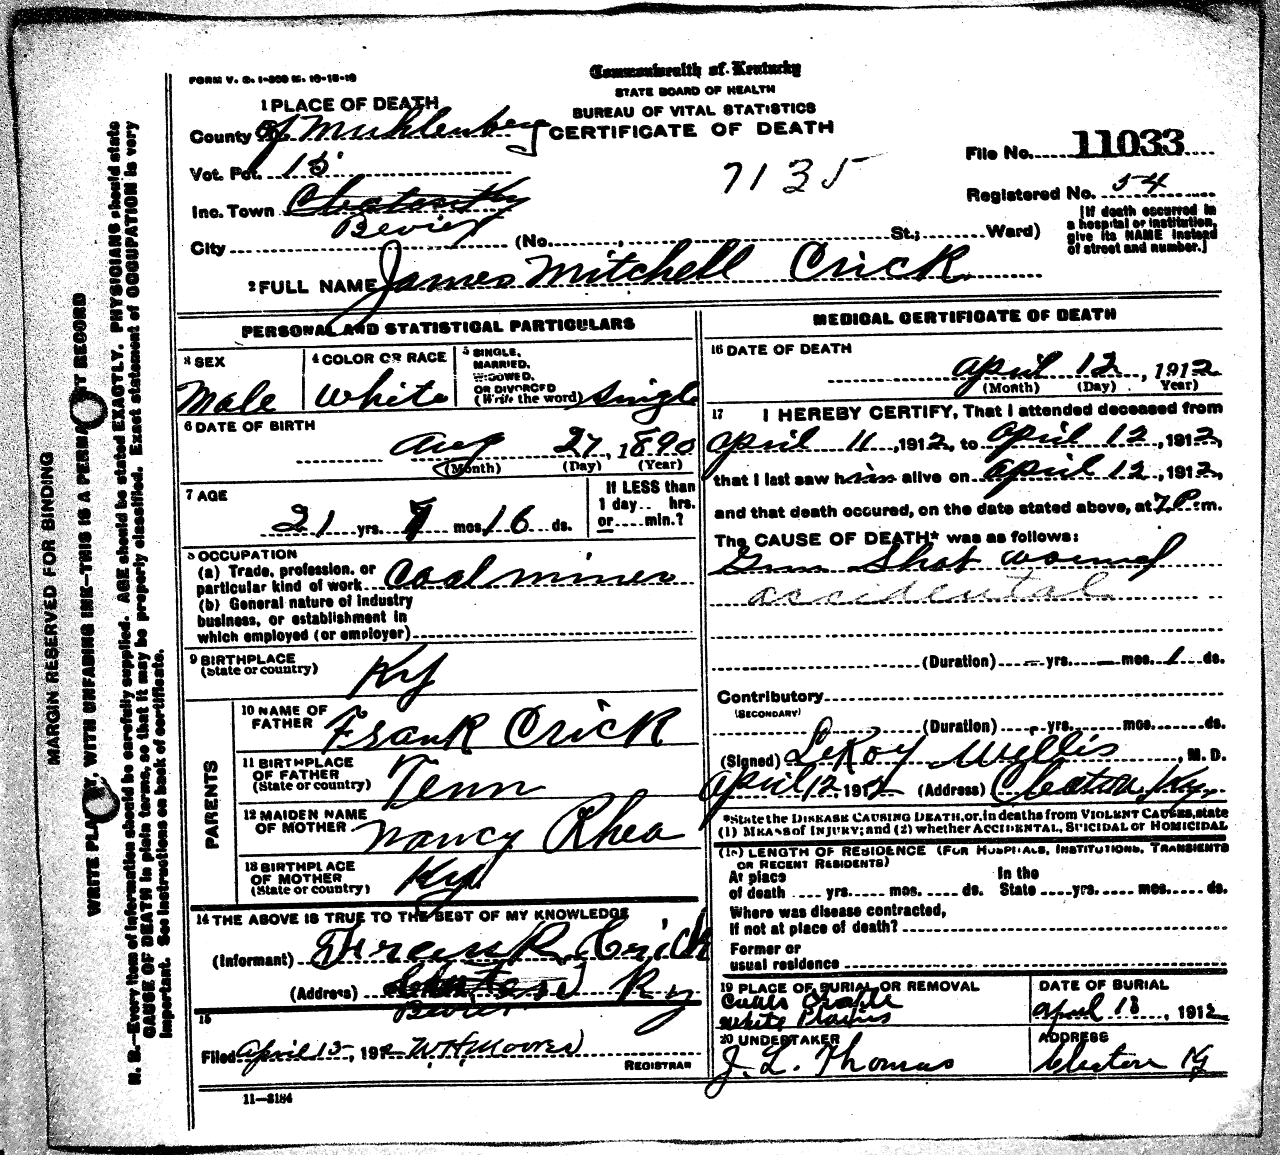 FORM V. S. 1-300 M. 10-18-10
Commonwealth of Kentucky
STATE BOARD OF HEALTH
BUREAU OF VITAL STATISTICS
CERTIFICATE OF DEATH
1 PLACE OF DEATH
County of Muhlenberg
Vot. Pct. 15
Inc. Town Cleaton Ky
Bevier
City (No. , St.; Ward)
7135
File No. 11033
Registered No. 54
[If death occurred in
a hospital or institution,
give its NAME instead
of street and number.]
2 FULL NAME James Mitchell Crick
PERSONAL AND STATISTICAL PARTICULARS
3 SEX
Male
4 COLOR OR RACE
White
5 SINGLE,
MARRIED,
WIDOWED,
OR DIVORCED
(Write the word) Single
6 DATE OF BIRTH
Aug 27, 1890
(Month) (Day) (Year)
7 AGE
21 yrs. 7 mos. 16 ds.
If LESS than
1 day.. hrs.
or.... min.?
8 OCCUPATION
(a) Trade, profession, or
particular kind of work Coal miner
(b) General nature of industry
business, or establishment in
which employed (or employer)
9 BIRTHPLACE
(State or country) Ky
PARENTS
10 NAME OF
FATHER Frank Crick
11 BIRTHPLACE
OF FATHER
(State or country) Tenn
12 MAIDEN NAME
OF MOTHER Nancy Rhea
13 BIRTHPLACE
OF MOTHER
(State or country) Ky
14 THE ABOVE IS TRUE TO THE BEST OF MY KNOWLEDGE
(Informant) R. Crick
(Address) Ky
Bevier
15
Filed April 13, 1912 W H Moores
REGISTRAR
11—3184
MEDICAL CERTIFICATE OF DEATH
16 DATE OF DEATH
April 12, 1912
(Month) (Day) Year)
17 I HEREBY CERTIFY, That I attended deceased from
April 11, 1912, to April 12, 1912,
that I last saw him alive on April 12, 1912,
and that death occured, on the date stated above, at 7 P. m.
The CAUSE OF DEATH* was as follows:
Gun Shot wound
accidental
(Duration) — yrs. — mos. 1 ds.
Contributory
(SECONDARY)
(Duration) yrs. mos. ds.
(Signed) LeRoy Wellis, M. D.
April 12 1912 (Address) Cleaton, Ky.
*State the DISEASE CAUSING DEATH, or, in deaths from VIOLENT CAUSES, state
(1) MEANS of INJURY; and (2) whether ACCIDENTAL, SUICIDAL or HOMICIDAL
(18) LENGTH OF RESIDENCE (FOR HOSPITALS, INSTITUTIONS, TRANSIENTS
OR RECENT RESIDENTS)
At place In the
of death .... yrs. mos. ds. State yrs. mos. ds.
Where was disease contracted,
if not at place of death?
Former or
usual residence
19 PLACE OF BURIAL OR REMOVAL
White Plains
DATE OF BURIAL
April 13, 1912
20 UNDERTAKER
J. L. Thomas
ADDRESS
Cleaton Ky
MARGIN RESERVED FOR BINDING
WRITE PLAINLY, WITH UNFADING INK—THIS IS A PERMANENT RECORD
N. B.—Every item of information should be carefully supplied. AGE should be stated EXACTLY. PHYSICIANS should state
CAUSE OF DEATH in plain terms, so that it may be properly classified. Exact statement of OCCUPATION is very
important. See instructions on back of certificate.